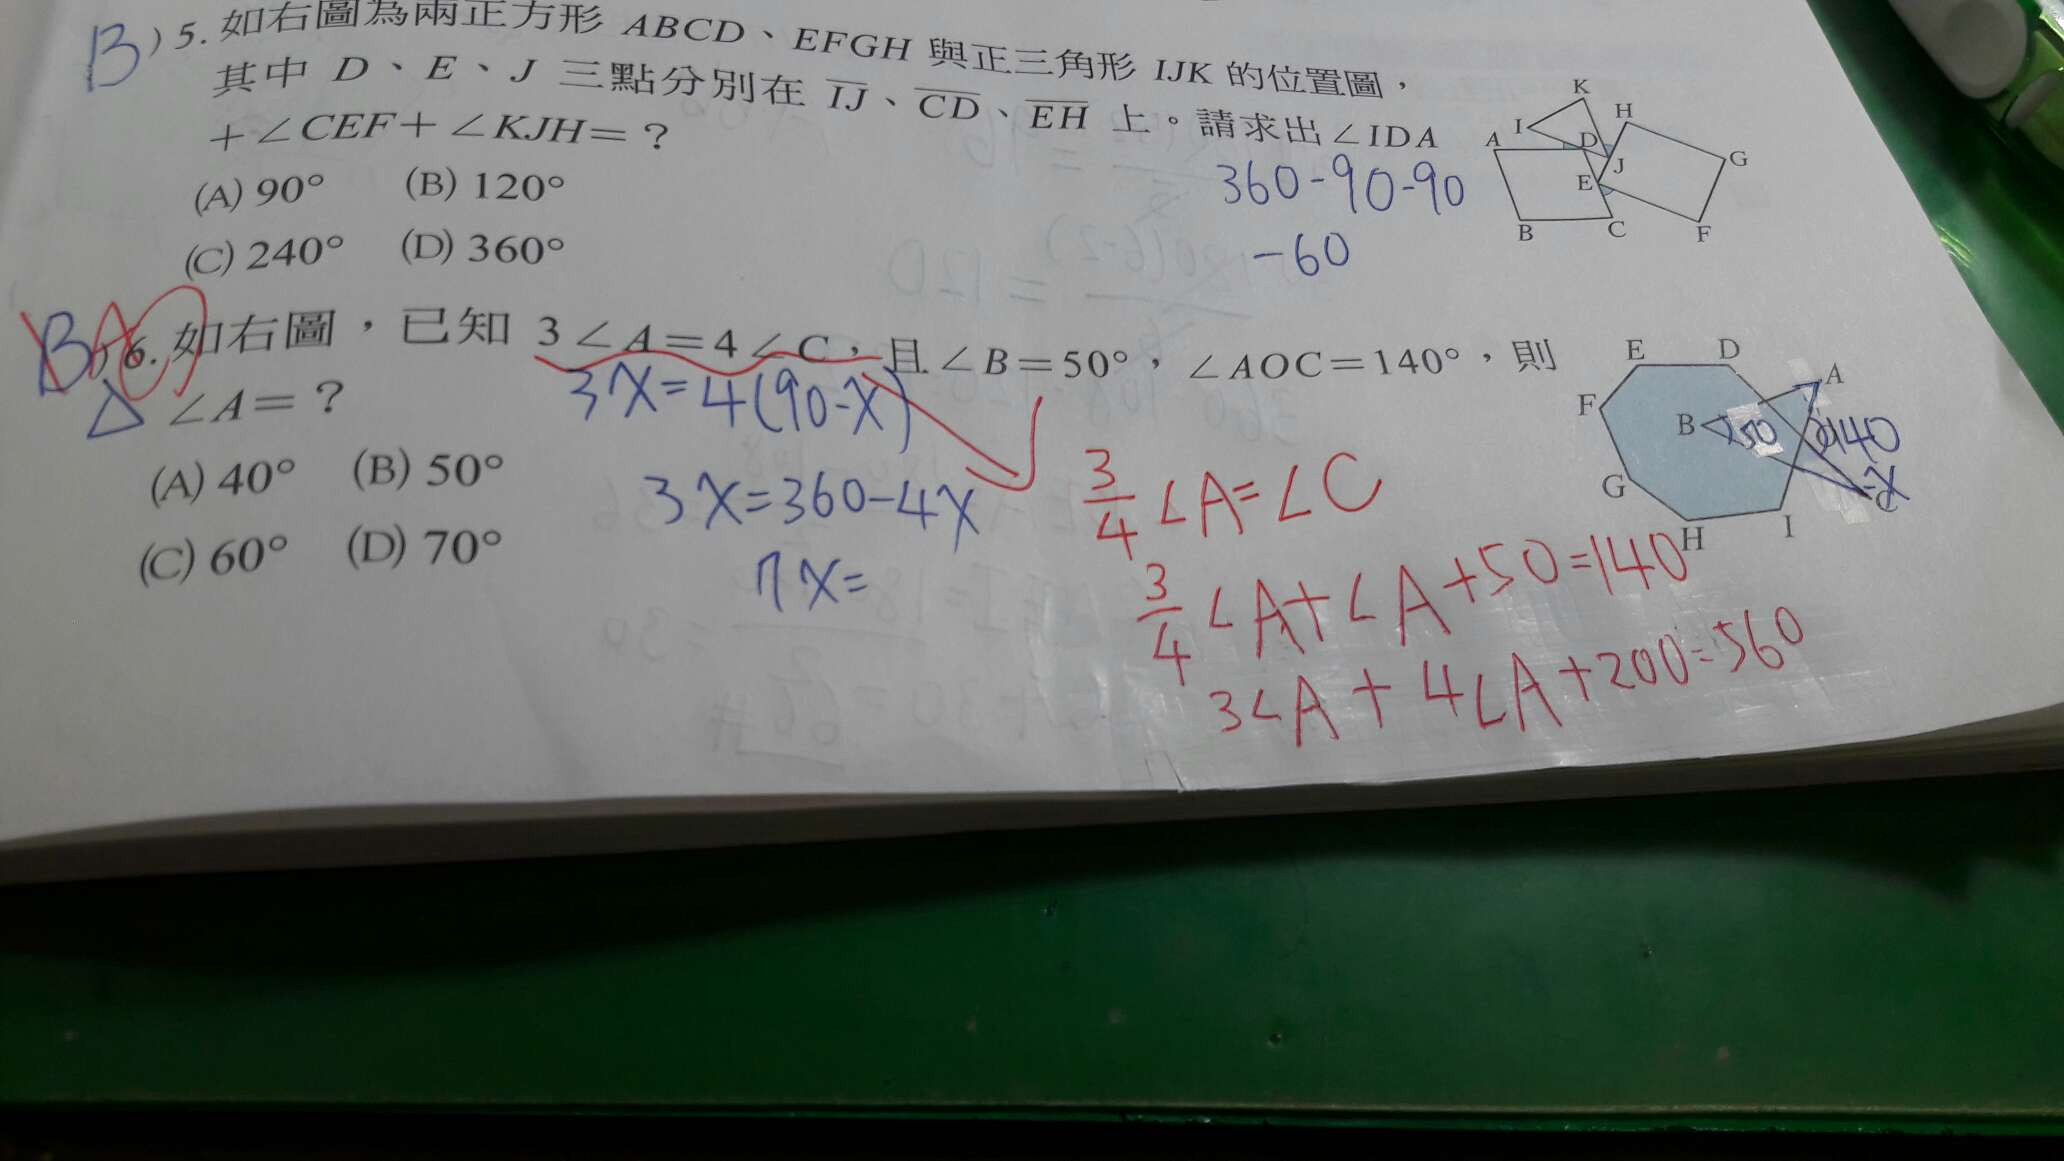 B ) 5. 如右圖為兩正方形 ABCD、EFGH 與正三角形 IJK 的位置圖，
其中 D、E、J 三點分別在 IJ、CD、EH 上。請求出∠IDA
+∠CEF+∠KJH=？
(A) 90° (B) 120°
(C) 240° (D) 360°
360-90-90
-60
K
H
A I D
G
J
E
B C F
B A 6. 如右圖，已知 3∠A=4∠C，且∠B=50°，∠AOC=140°，則
△ ∠A=？
(A) 40° (B) 50°
(C) 60° (D) 70°
3X=4(90-X)
3X=360-4X
7X=
E D
A
F B 50 140
-X
G C
H I
3/4 ∠A=∠C
3/4 ∠A+∠A+50=140
3∠A+4∠A+200=560